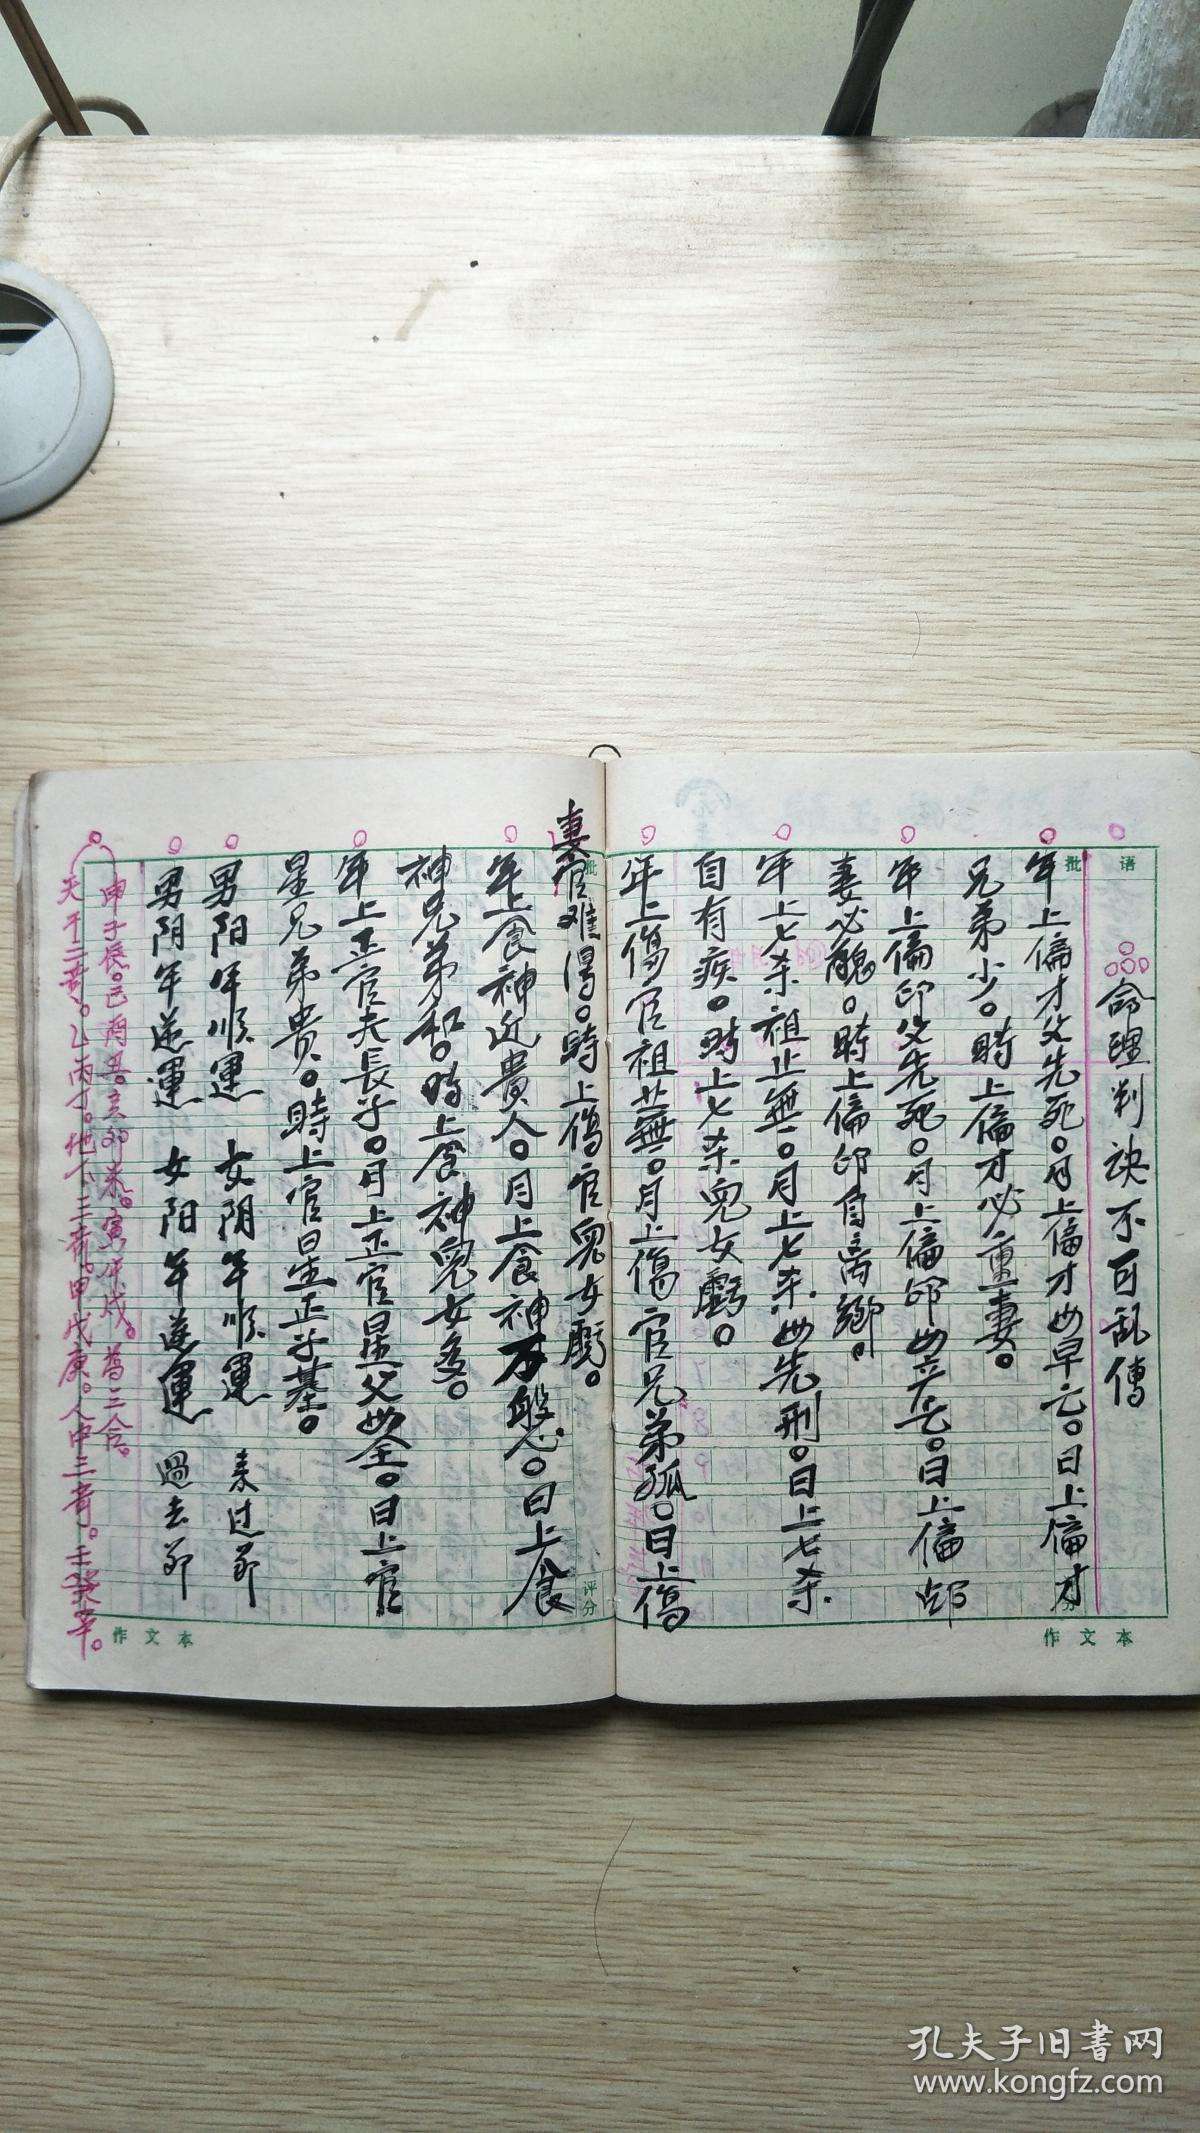 命理判诀不可乱傳
年上偏才父先死。月上偏才母早亡。日上偏才
兄弟少。時上偏才必重妻。
年上偏印父先死。月上偏印母亡。日上偏印
妻必醜。時上偏印自离鄉。
年上七杀祖上無。月上七杀母先刑。日上七杀
自有疾。時上七杀兒女虧。
年上傷官祖上無。月上傷官兄弟孤。日上傷
妻官难得。時上傷官兒女虧。
年上食神近貴人。月上食神万般。日上食
神兄弟和。時上食神兒女多。
年上正官夫長子。月上正官星父母全。日上官
星兄弟貴。時上官星正子基。
男阳年順運 女阴年順運 未过節
男阴年逆運 女阳年逆運 過去節
申子辰。巳酉丑。亥卯未。寅午戌。為三合。
天干三奇。乙丙丁。地下三奇。甲戊庚。人中三奇。壬癸辛。
批
语
评分
作文本
作文本
孔夫子旧书网
www.kongfz.com